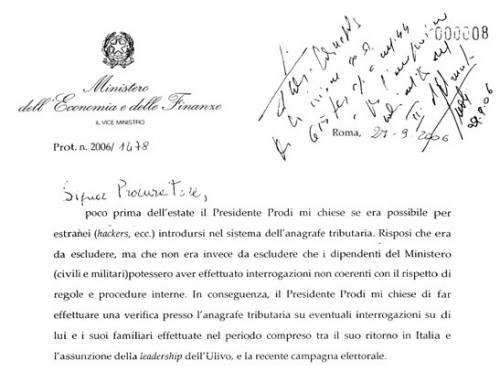 000008
Ministero
dell'Economia e delle Finanze
IL VICE MINISTRO
Roma, 27-9-2006
Prot. n. 2006/ 1478
Signor Procuratore,
poco prima dell'estate il Presidente Prodi mi chiese se era possibile per
estranei (hackers, ecc.) introdursi nel sistema dell'anagrafe tributaria. Risposi che era
da escludere, ma che non era invece da escludere che i dipendenti del Ministero
(civili e militari)potessero aver effettuato interrogazioni non coerenti con il rispetto di
regole e procedure interne. In conseguenza, il Presidente Prodi mi chiese di far
effettuare una verifica presso l'anagrafe tributaria su eventuali interrogazioni su di
lui e i suoi familiari effettuate nel periodo compreso tra il suo ritorno in Italia e
l'assunzione della leadership dell'Ulivo, e la recente campagna elettorale.